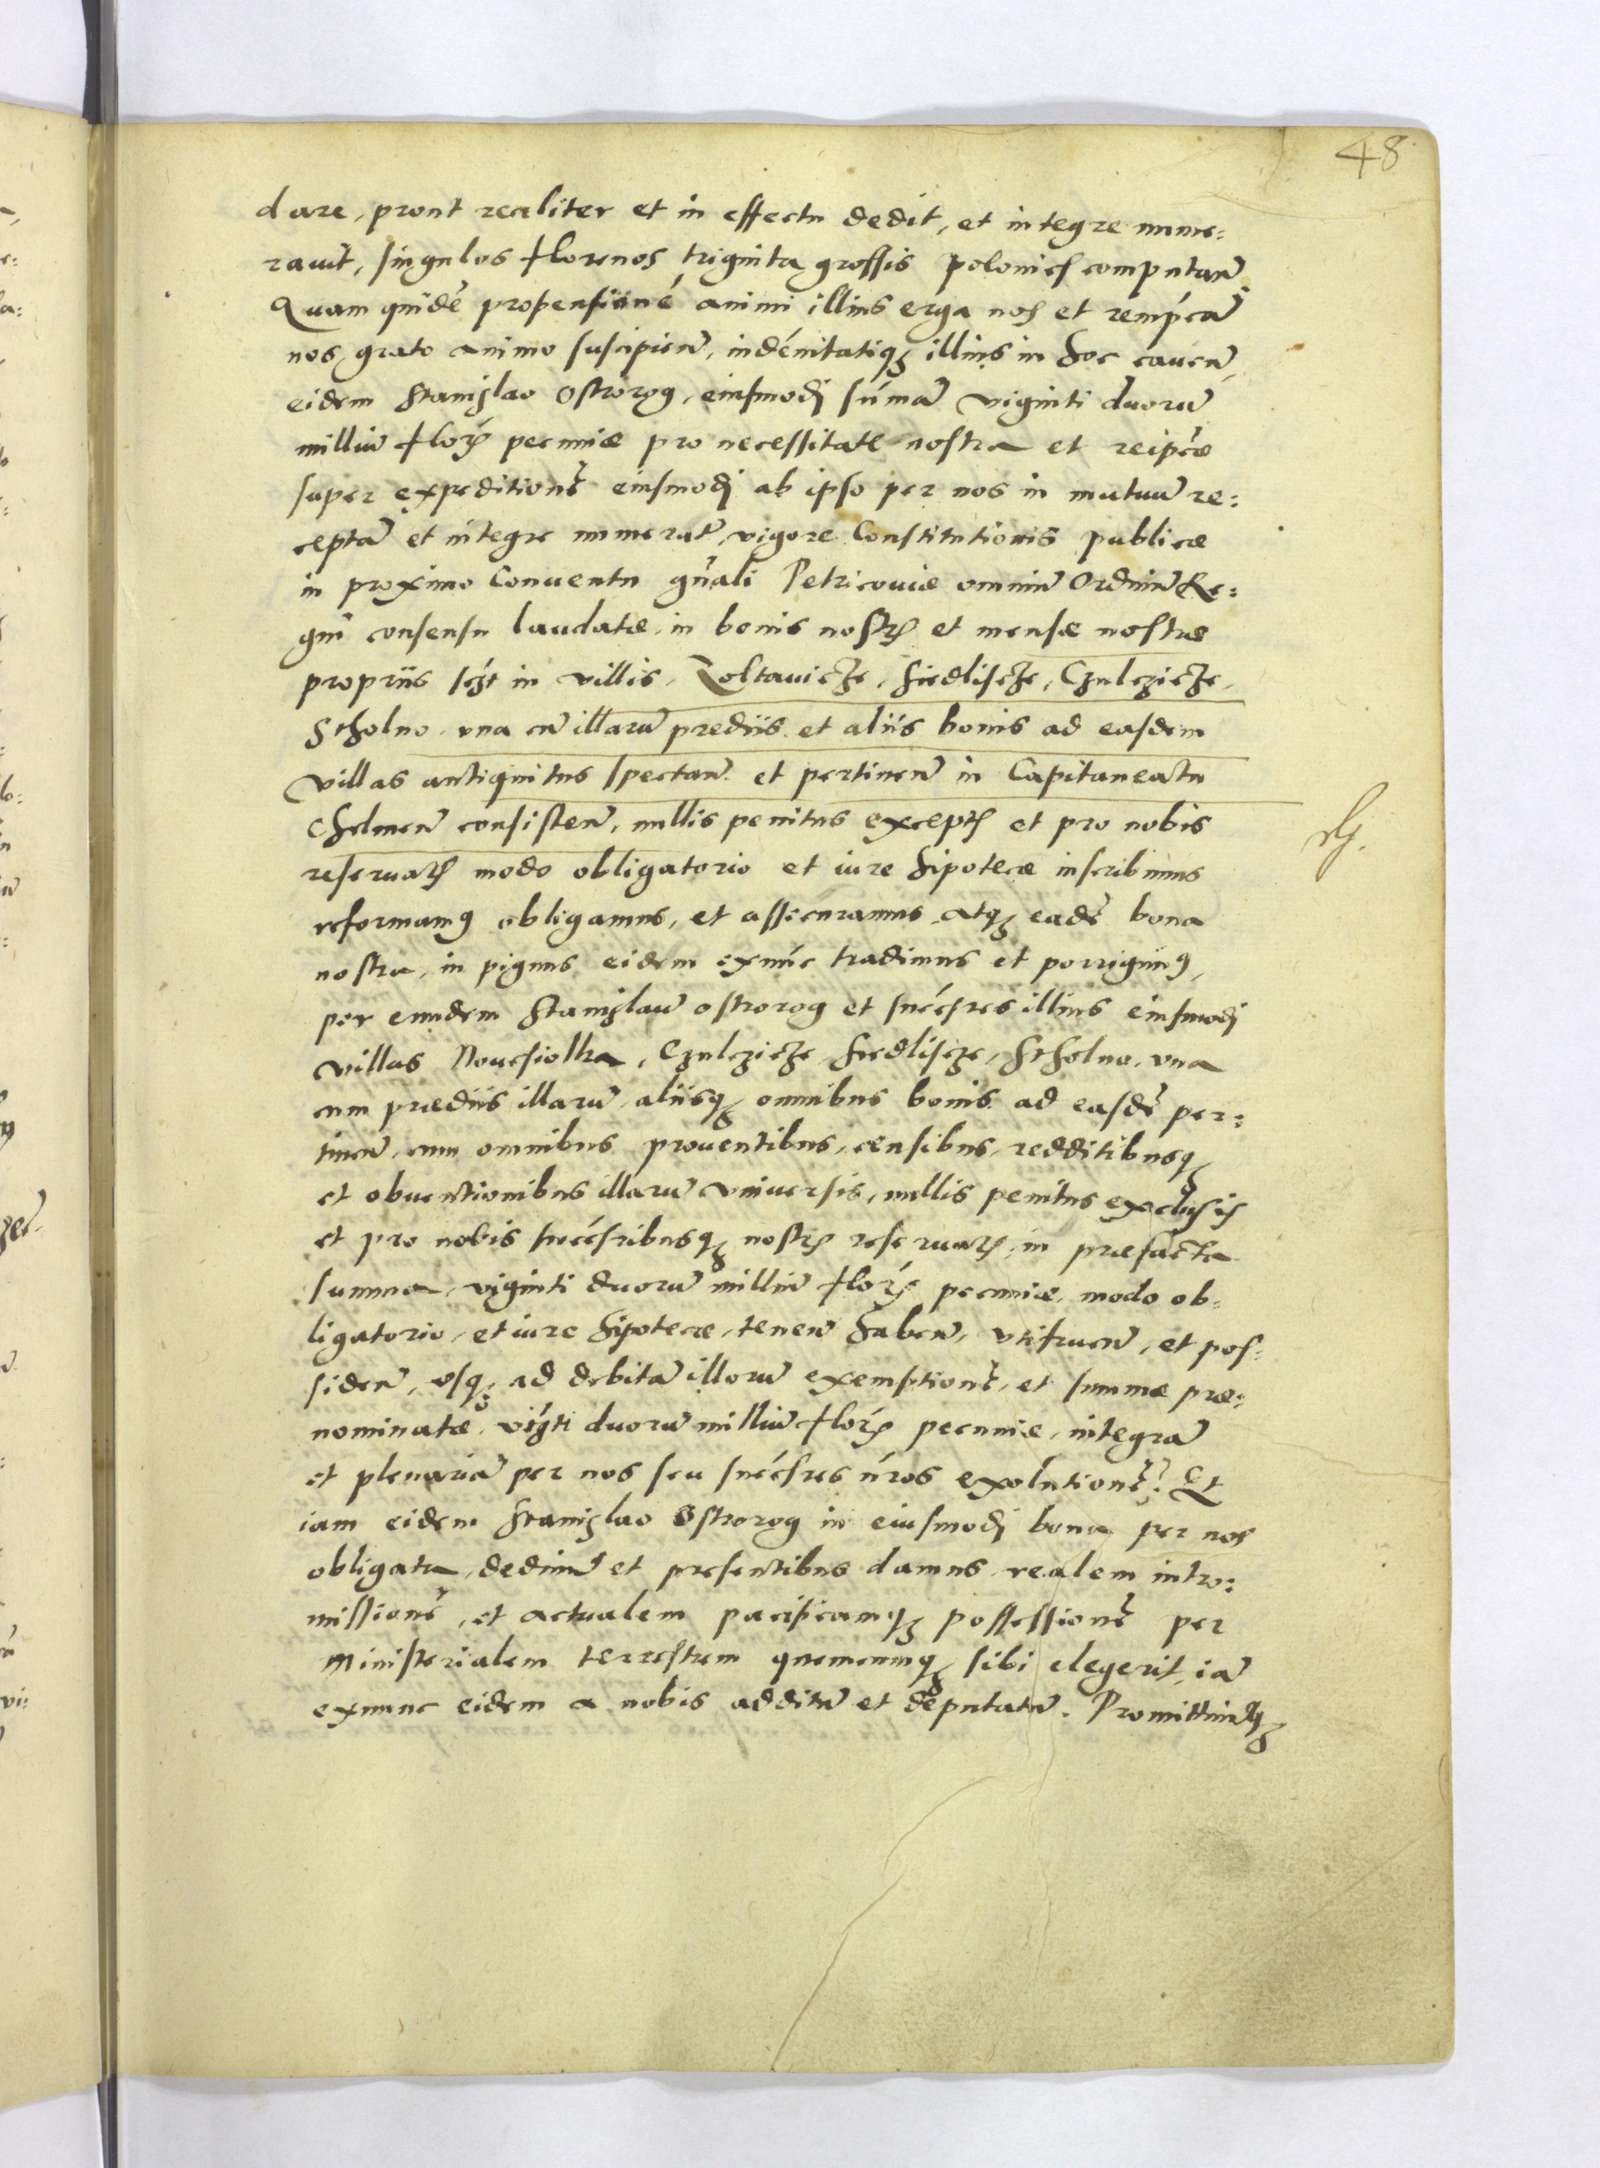 48
dare, prout realiter et in effectu dedit, et integre nume:
ravit, singulos florenos triginta grossis polonics computan̄
Quam quidē propensionē animi illius erga nos et rempcā
nos grato animo suscipien̄, indēnitatiqʒ illius in hoc caven̄
eidem Stanislao Ostrorog, eiusmodj sūmā viginti duorū
milliū florꝝ pecuniæ pro necessitate nostra et reipcæ
super expeditionē eiusmodj ab ipso per nos in mutuū re:
ceptā et integre numeratā, vigore Constitutionis publicæ
in proximo Conventu gn̄ali Petricoviæ omniū Ordinū Re:
gni consensu laudatæ, in bonis nostrꝭ et mensæ nostræ
propriis sczt in villis, Zoltavicze, Siedliscze, Czulczicze,
Stholno una cū illarū prediis et aliis bonis ad easdem
villas antiquitus spectan̄ et pertinen̄ in Capitaneatu
Chelmen̄ consisten̄, nullis penitus exceptꝭ et pro nobis
reservatꝭ modo obligatorio et iure hipotecæ inscribimus
reformamꝰ obligamus, et assecuramus atqʒ eadē bona
nostra, in pignus eidem exnūc tradimus et porrigimꝰ,
per eundem Stanislaū ostrorog et succēsres illius eiusmodj
villas Novesiolka, Czulczicze, Siedliscze, Stholno, una
cum prædiis illarū aliisqʒ omnibus bonis ad easdē per:
tinen̄, cum omnibus proventibus, censibus, redditibusqʒ
et obventionibus illarū universis, nullis penitus exclusis
et pro nobis succēsribusqʒ nostrꝭ reservatꝭ, in præfacta
summa, viginti duorū milliū florꝝ pecuniæ, modo ob:
ligatorio, et iure hipotecæ, tenen̄ haben̄, utifruen̄, et pos:
siden̄, usqʒ ad debitā illorū exemptionē, et summæ præ:
nominatæ, vigti duorū milliū florꝝ pecuniæ, integrā
et plenariā per nos seu succēsres n̄ros exolutionē. Et
iam eidem Stanislao Ostrorog in eiusmodj bona per nos
obligata, dedimꝰ et presentibus damus realem intro:
missionē, et actualem pacificamqʒ possessionē per
Ministerialem terrestrem quemcunqʒ sibi elegerit, iā
exnunc eidem a nobis additū et deputatū. Promittimꝰqʒ